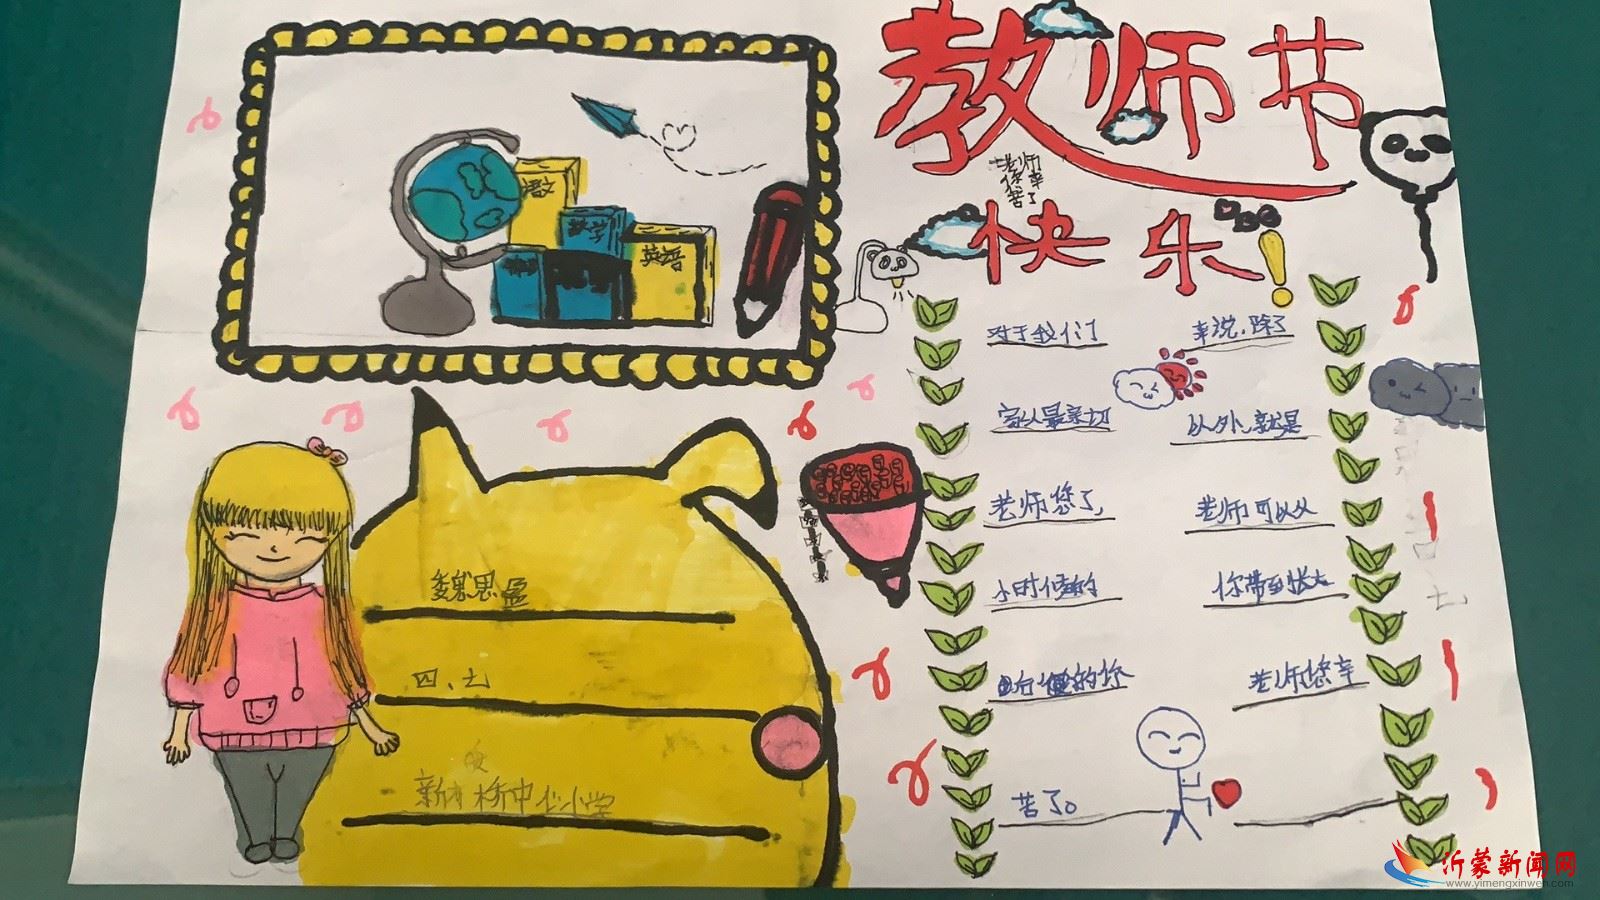 教师节
快乐！
老师
你辛
苦了
语文
数学
英语
对于我们
来说，除了
家人最亲切
以外，就是
老师您了，
老师可以从
小时候的
你带到长大
后的你
老师您辛
苦了。
魏思孟
四、七
沂蒙新闻网
www.yimengxinwen.com